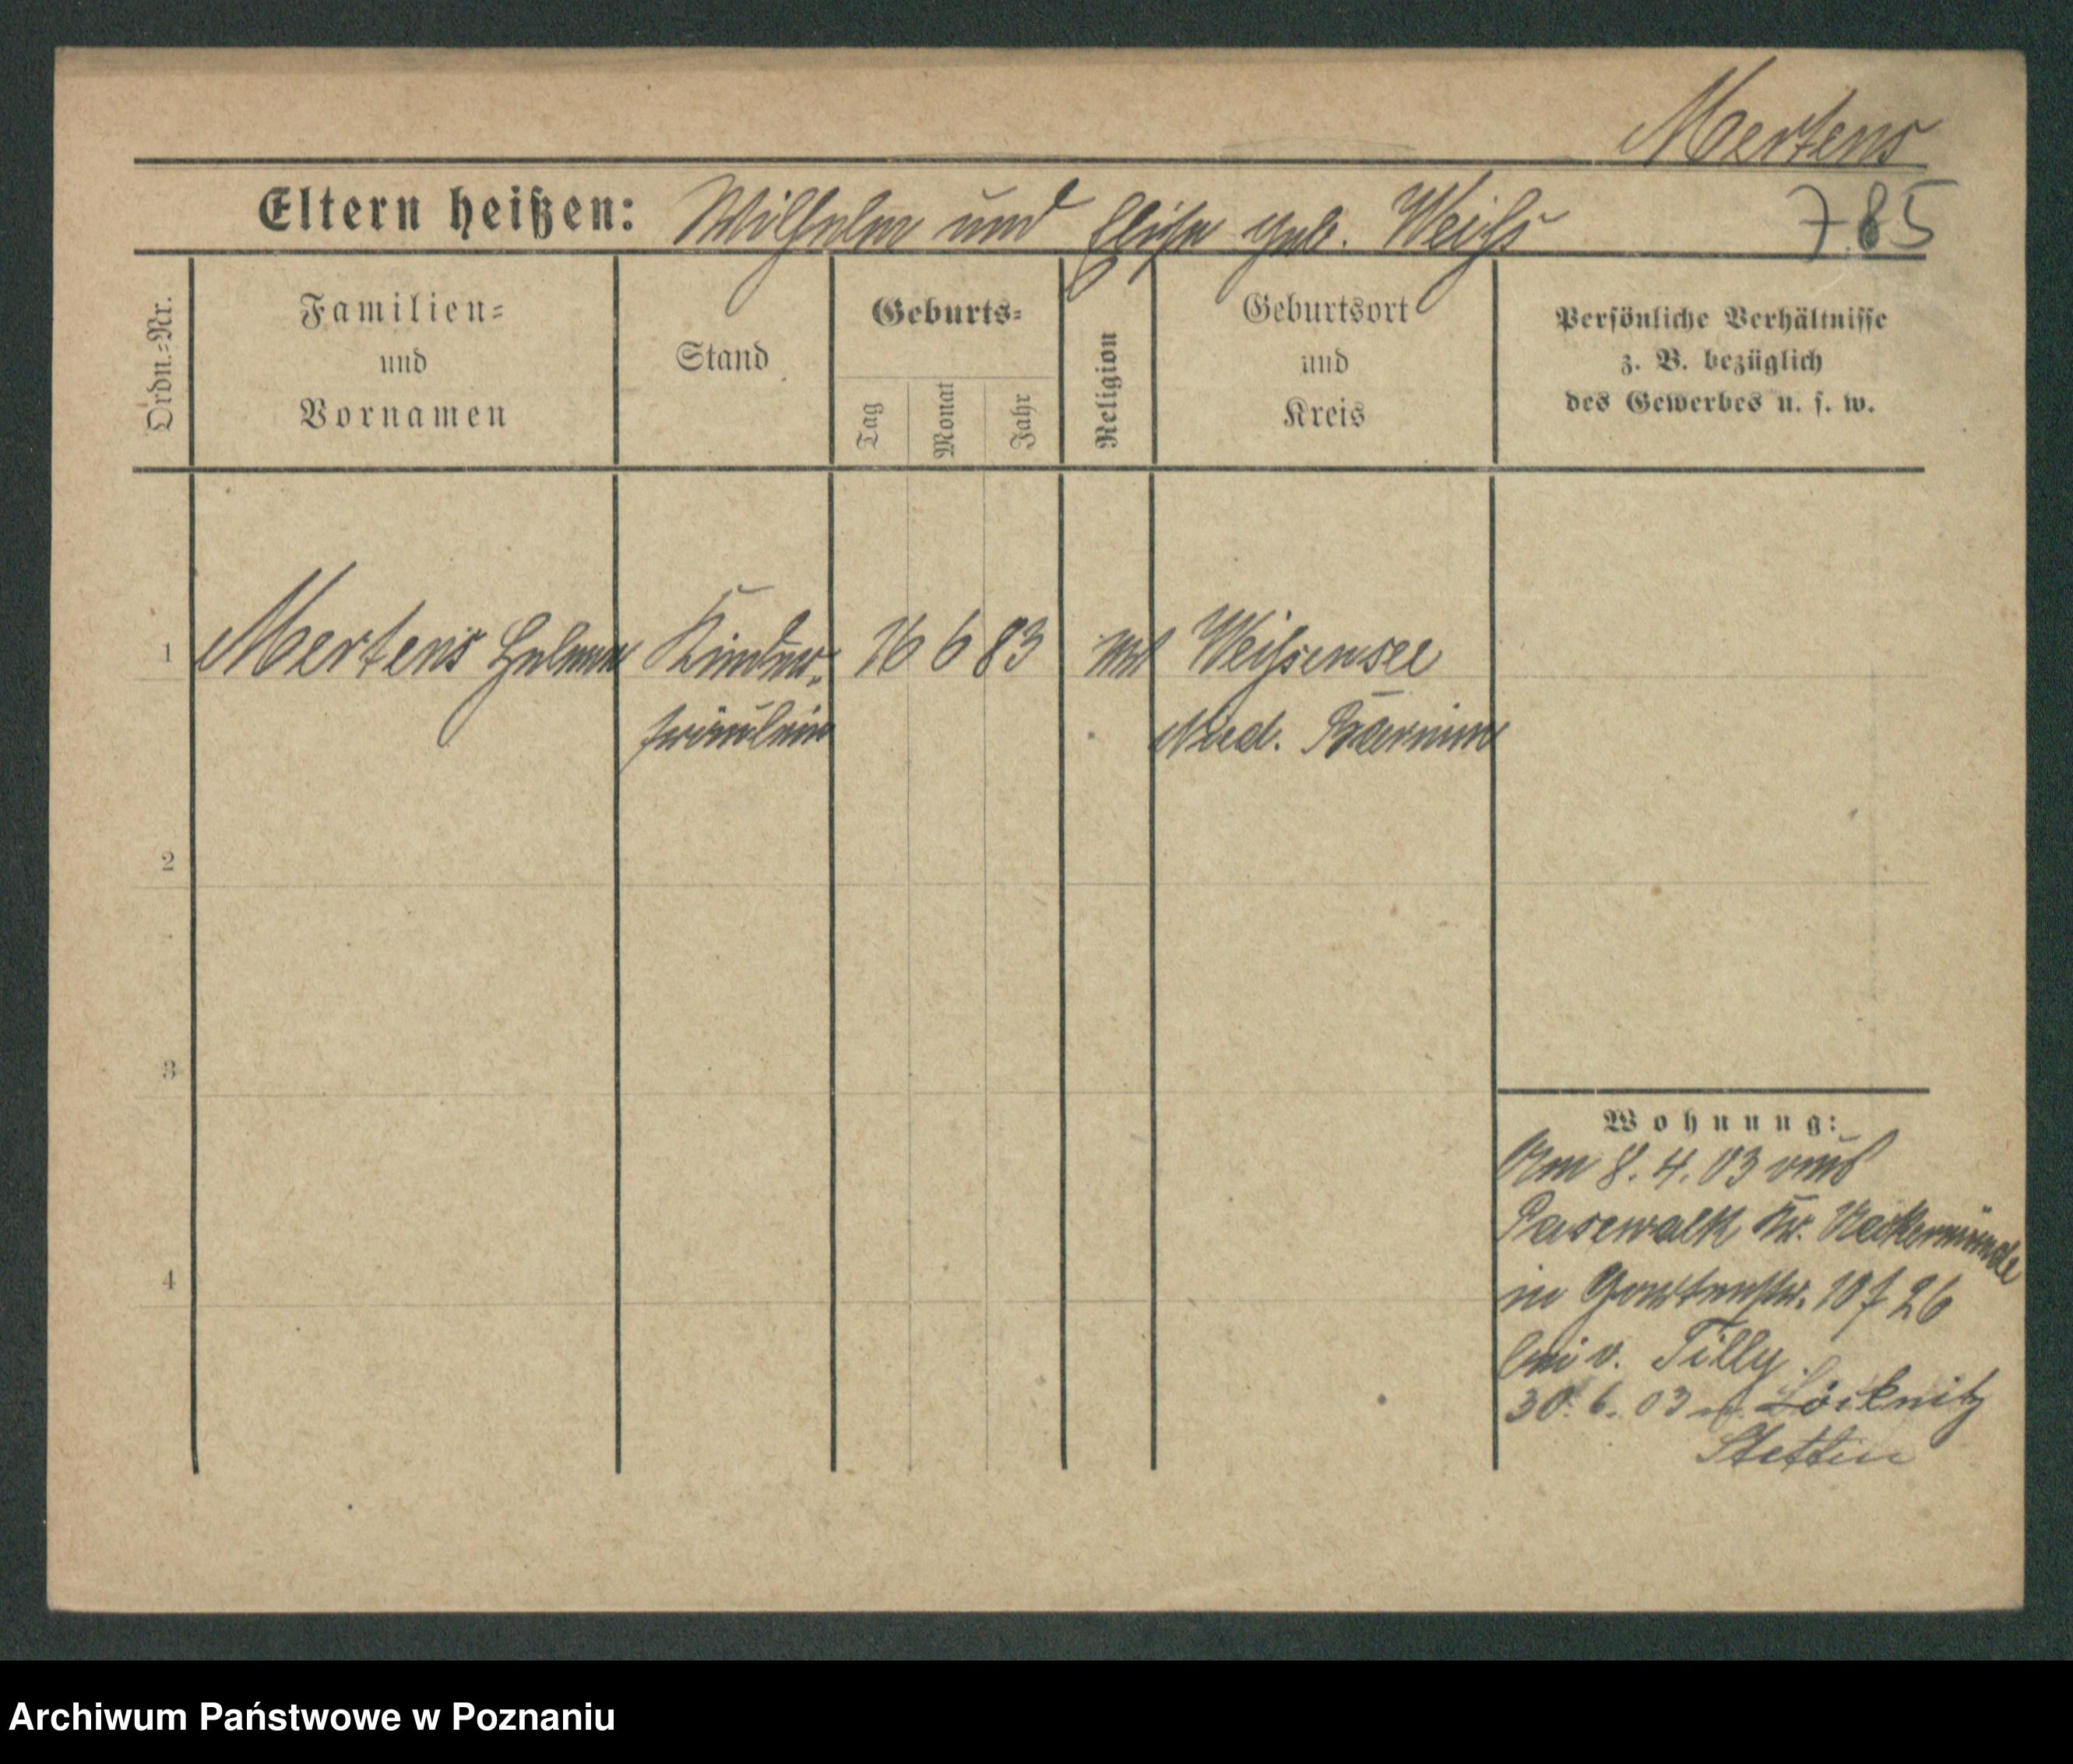 Mertens
Eltern heißen: Wilhelm und Elise geb. Weiß
785
Ordn.=Nr.
Familien=
und
Vornamen
Stand
Geburts=
Tag
Monat
Jahr
Religion
Geburtsort
und
Kreis
Persönliche Verhältnisse
z. B. bezüglich
des Gewerbes u. s. w.
1 Mertens Helene Kinder- 16 6 83 Weißensee
fräulein Nied. Barnim
2
3
4
Wohnung:
Am 8. 4. 03 aus
Pasewalk Kr. Ueckermünde
in Gartenstr. 10 f 26
bei v. Tilly
30. 6. 03 n. Löcknitz
Stettin
Archiwum Państwowe w Poznaniu